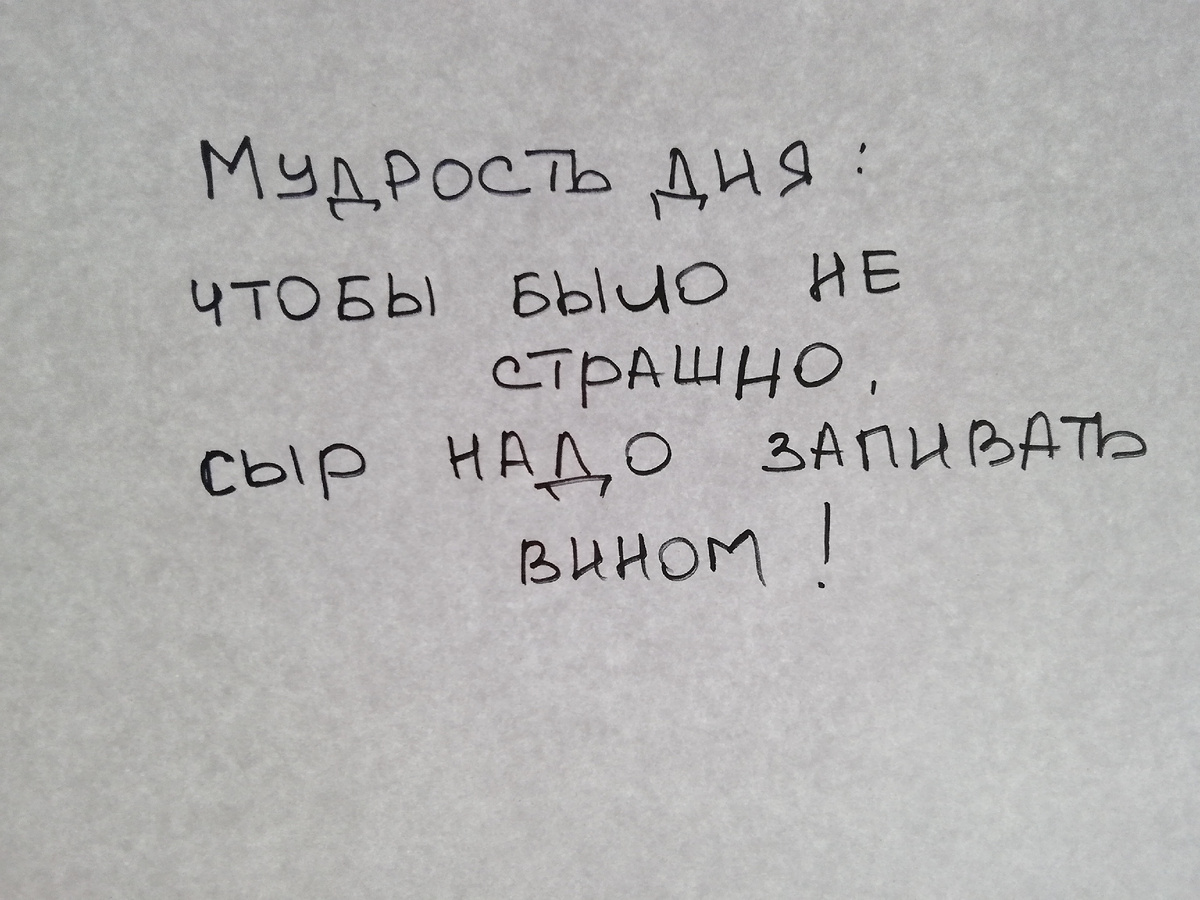 Мудрость дня:
чтобы было не
страшно,
сыр надо запивать
вином!